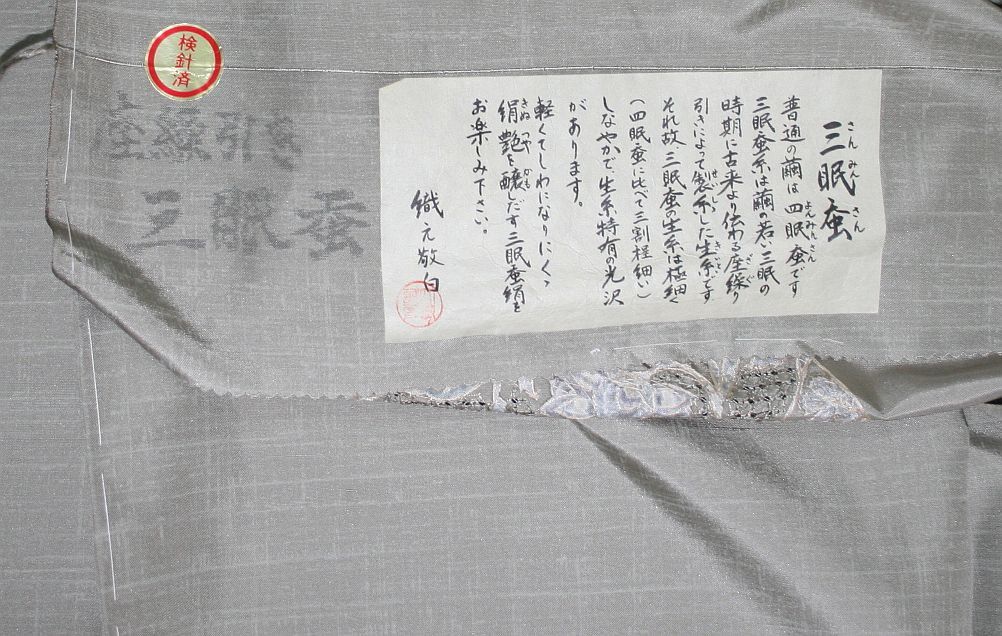 検針済
座繰引き
三眠蚕
さんみんさん
三眠蚕
よんみんさん
普通の繭は四眠蚕です
三眠蚕糸は繭の若い三眠の
ざぐ
時期に古来より伝わる座繰り
引きによって製糸した生糸です
それ故、三眠蚕の生糸は極細く
(四眠蚕に比べて三割程細い)
しなやかで生糸特有の光沢
があります。
軽くてしわになりにくい
きぬつや かも
絹艶を醸しだす三眠蚕絹を
お楽しみ下さい。
織元敬白